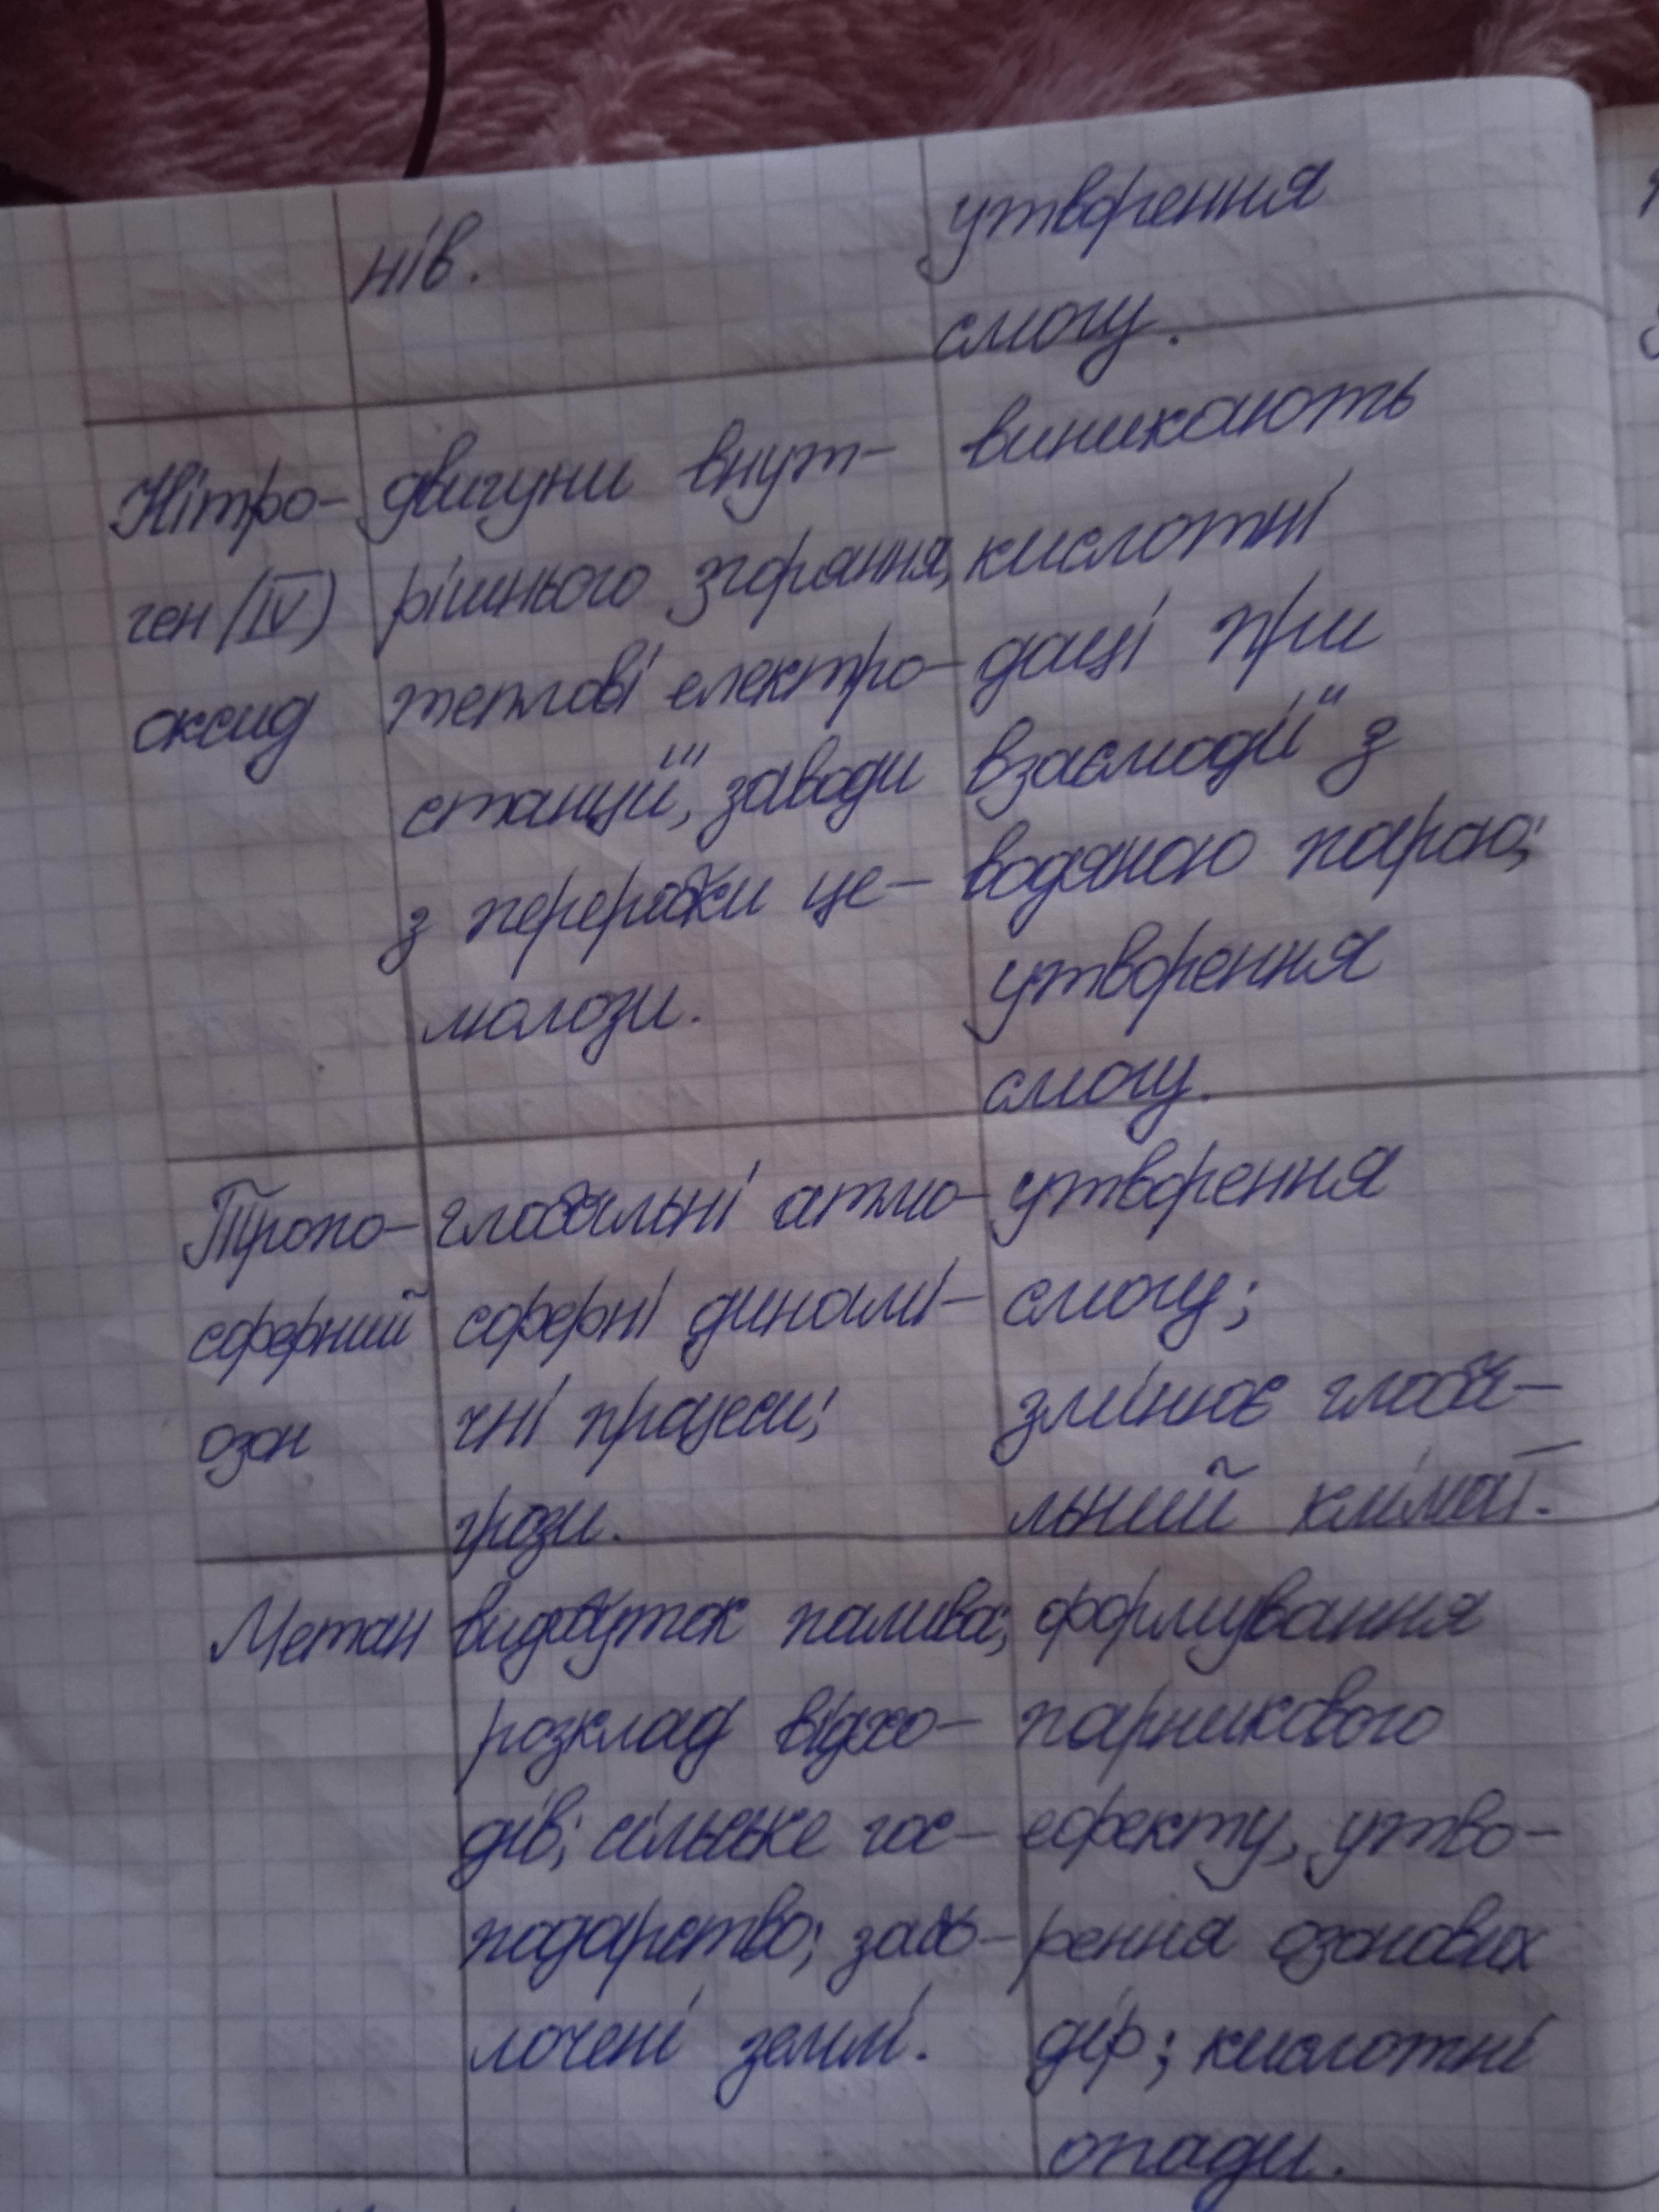 нів.
утворення
смогу.
Нітро-
ген (IV)
оксид
двигуни внут-
рішнього згоряння,
теплові електро-
станції, заводи
з переробки це-
молози.
виникають
кислотні
дощі при
взаємодії з
водяною парою;
утворення
смогу.
Тропо-
сферний
озон
глобальні атмо-
сферні динамі-
чні процеси;
грози.
утворення
смогу;
змінює глоба-
льний клімат.
Метан
видобуток палива;
розклад відхо-
дів; сільське гос-
подарство; забо-
лочені землі.
формування
парникового
ефекту, утво-
рення озонових
дір; кислотні
опади.